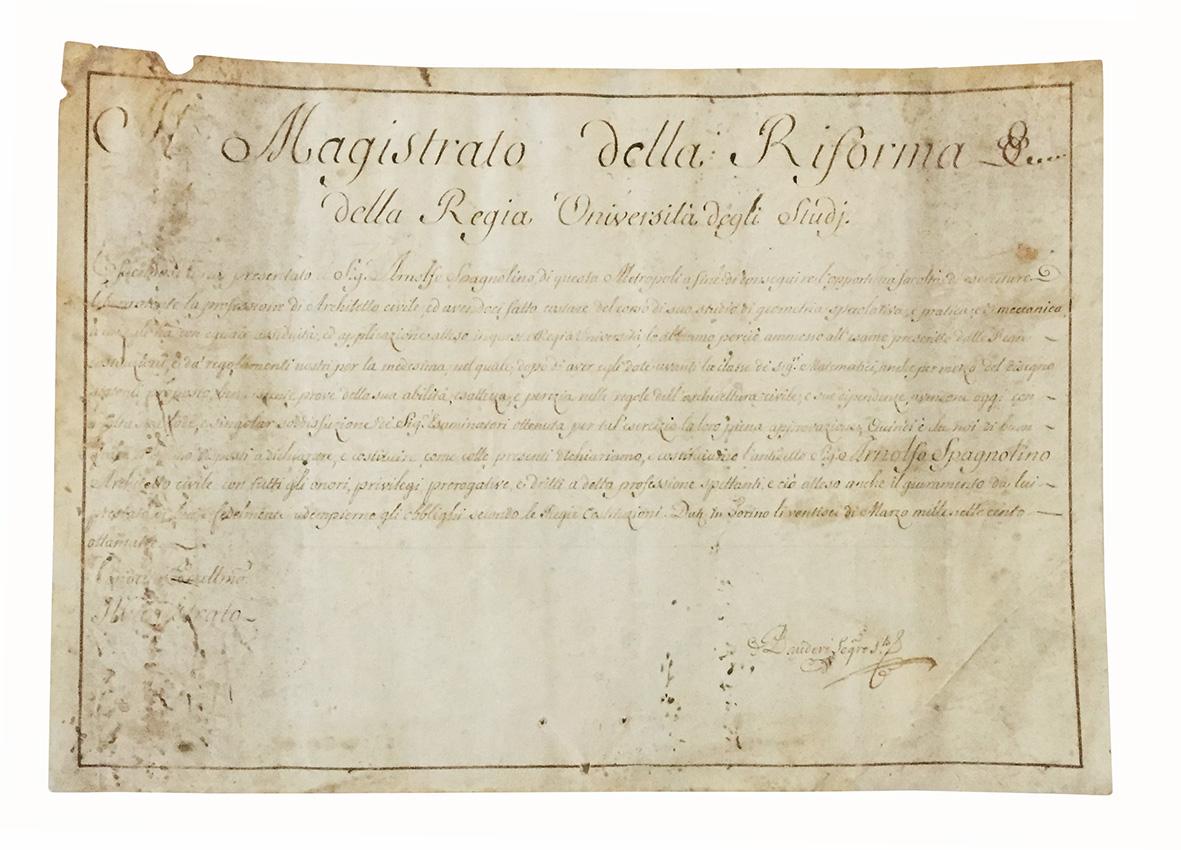 Il Magistrato della Riforma &....
della Regia Università degli Studj.
presentato il Sig.r Arnolfo Spagnolino, di questa Metropoli a fine di conseguire l'opportuna facoltà di esercitare
la professione di Architetto civile, ed avendoci fatto constare del corso di suo studio di geometria specolativa, e pratica, e di meccanica
con eguale assiduità, ed applicazione atteso in questa Regia Università, lo abbiamo perciò ammesso all'esame prescritto dalle Regie
e da' regolamenti nostri per la medesima, nel quale, dopo di aver egli date avanti la classe de' Sig.ri Matematici, anche per mezzo del disegno
prove della sua abilità, esattezza, e perizia nelle regole dell'architettura civile, e sue dipendenze, avendone oggi con
lode, e singolar soddisfazione de' Sig.ri Esaminatori ottenuta per tal esercizio la loro piena approvazione, Quindi è che noi di buon
disposti a dichiarare, e costituire come colle presenti dichiariamo, e costituiamo l'antidetto Sig.r Arnolfo Spagnolino
Architetto civile con tutti gli onori, privilegi, prerogative, e dritti a detta professione spettanti, e ciò atteso anche il giuramento da lui
prestato di fedelmente adempierne gli obblighi secondo le Regie Costituzioni. Dat. in Torino li ventisei di Marzo mille sette cento
Magistrato